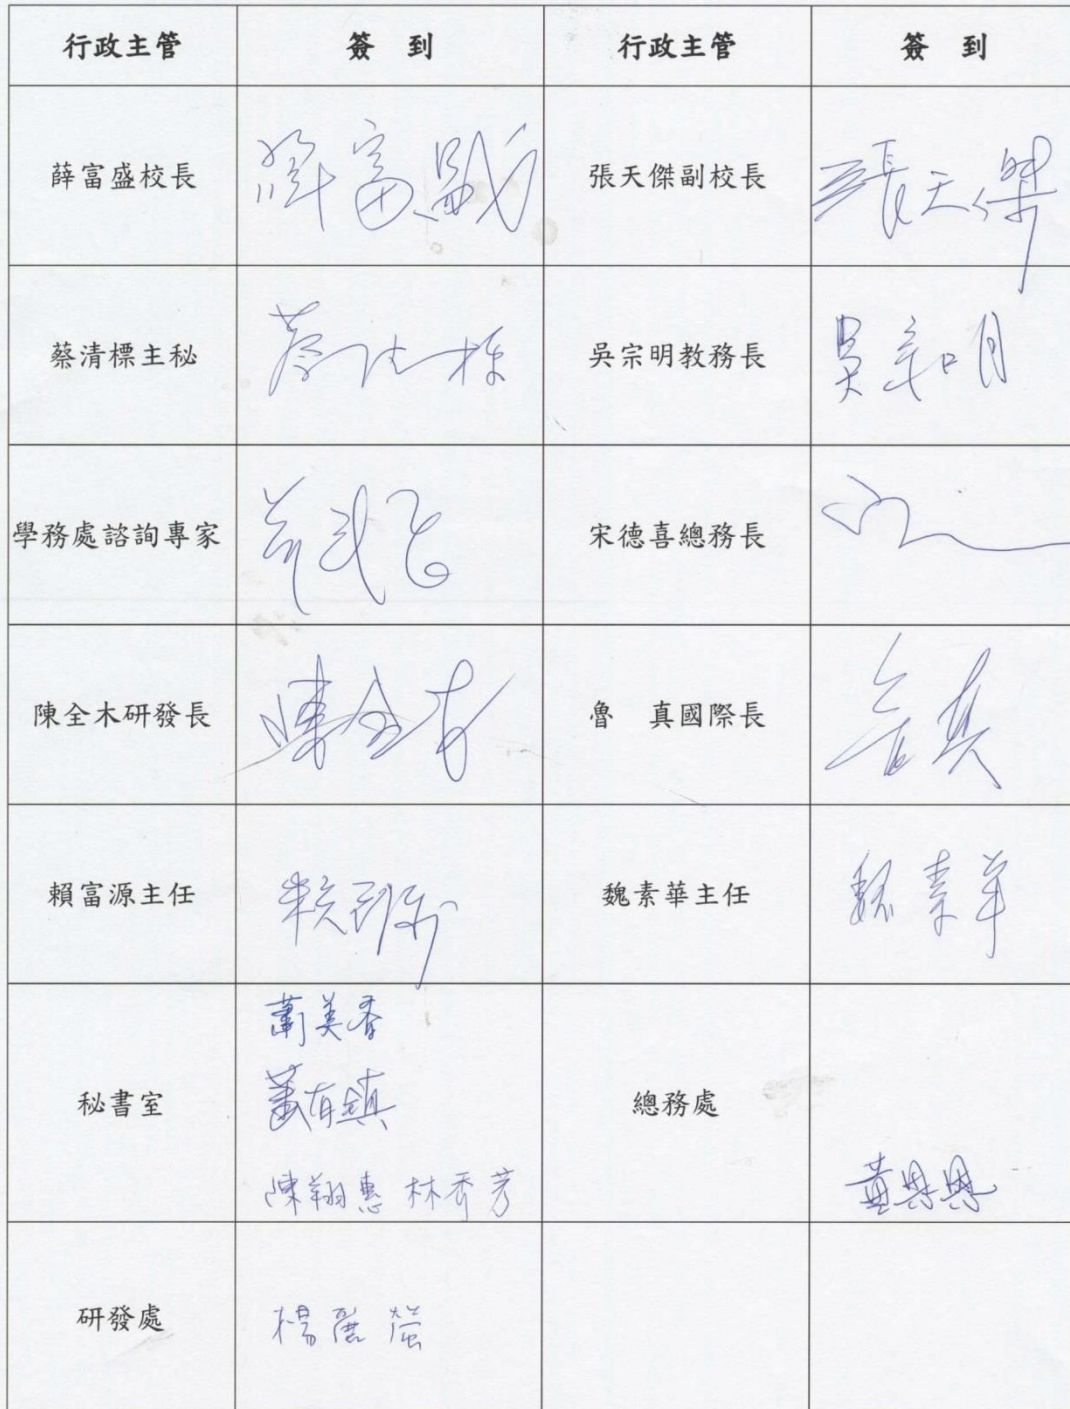 行政主管 簽 到 行政主管 簽 到
薛富盛校長 薛富盛 張天傑副校長 張天傑
蔡清標主秘 蔡清標 吳宗明教務長 吳宗明
學務處諮詢專家 宋德喜總務長
陳全木研發長 陳全木 魯 真國際長 魯真
賴富源主任 賴富源 魏素華主任 魏素華
蕭美香
秘書室 蕭有鎮 總務處
陳翔惠 林秀芳
研發處 楊麗瑩